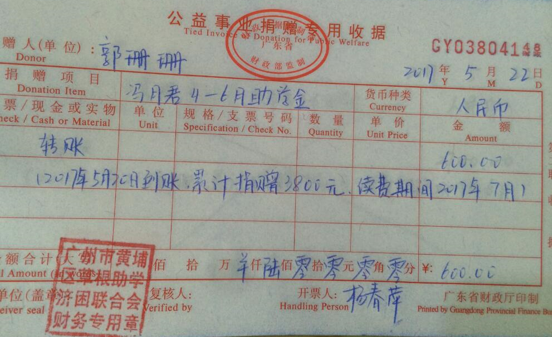 公益事业捐赠专用收据
Tied Invoice of Donation for Public Welfare
广东省
财政部监制
GY0380414
赠人(单位):郭珊珊
Donor
2017年 5月 22日
Y M D
捐赠项目 冯月君4-6月助学金 货币种类 人民币
Donation Item Currency
票/现金或实物 单位 规格/支票号码 数量 单价 金额
heck / Cash or Material Unit Specification / Check No. Quantity Unit Price Amount
转账 600.00
(2017年5月20日到账,累计捐赠3800元,续费期间2017年7月)
金额合计(大写) 佰 拾 万 仟陆佰零拾零元零角零分 ¥: 600.00
al Amount (
广州市黄埔
区草根助学
济困联合会
财务专用章
单位(盖章 复核人: 开票人:杨春萍 广东省财政厅印制
eiver seal Verified by Handling Person Printed by Guangdong Provincial Finance